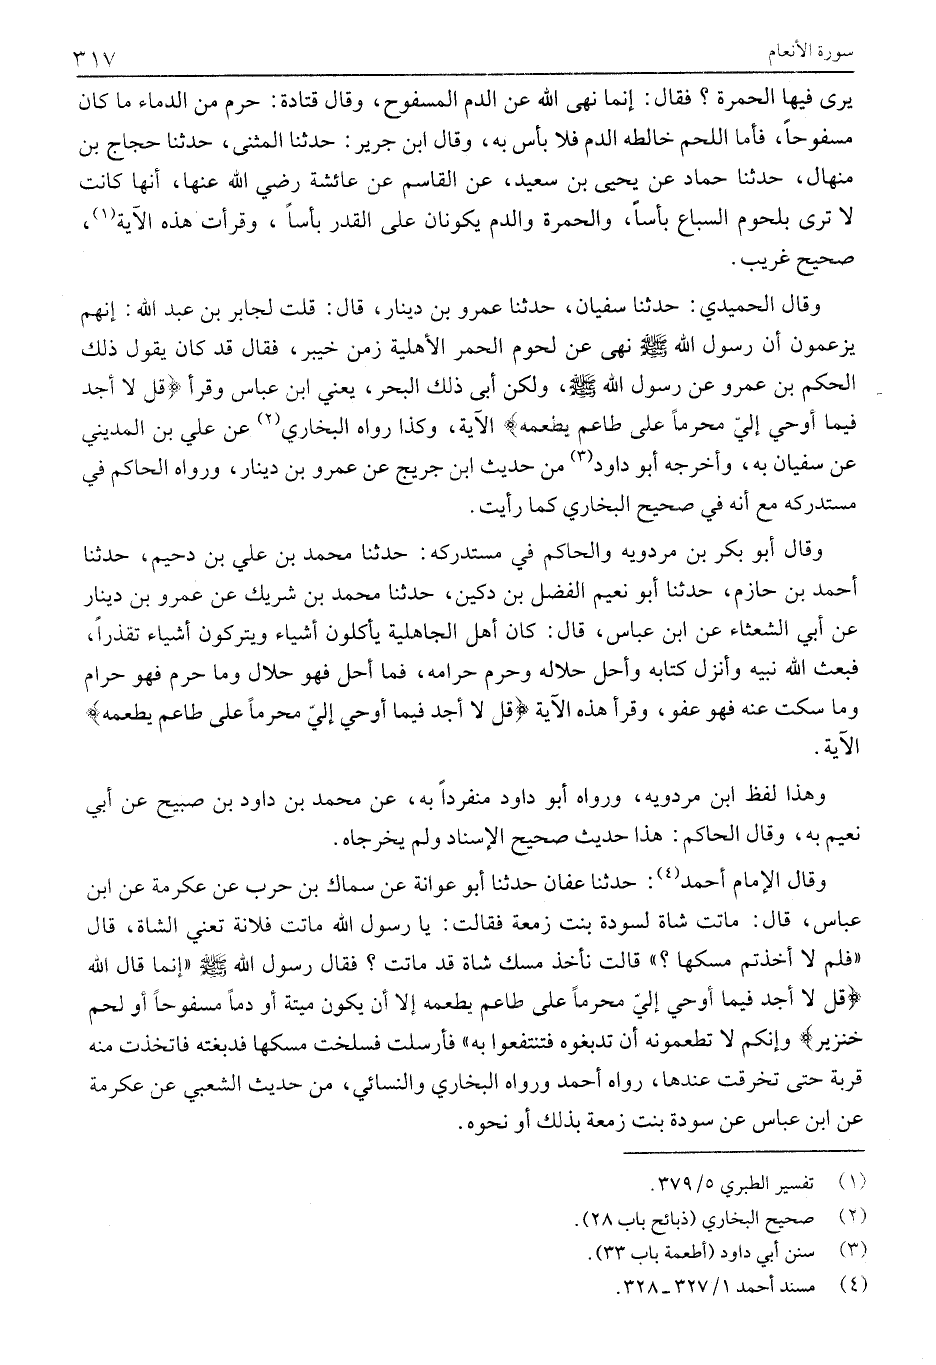 سورة الأنعام ٣١٧
يرى فيها الحمرة ؟ فقال : إنما نهى الله عن الدم المسفوح ، وقال قتادة : حرم من الدماء ما كان
مسفوحاً ، فأما اللحم خالطه الدم فلا بأس به ، وقال ابن جرير : حدثنا المثنى ، حدثنا حجاج بن
منهال ، حدثنا حماد عن يحيى بن سعيد ، عن القاسم عن عائشة رضي الله عنها ، أنها كانت
لا ترى بلحوم السباع بأساً ، والحمرة والدم يكونان على القدر بأساً ، وقرأت هذه الآية(١) ،
صحيح غريب .
وقال الحميدي : حدثنا سفيان ، حدثنا عمرو بن دينار ، قال : قلت لجابر بن عبد الله : إنهم
يزعمون أن رسول الله ﷺ نهى عن لحوم الحمر الأهلية زمن خيبر ، فقال قد كان يقول ذلك
الحكم بن عمرو عن رسول الله ﷺ ، ولكن أبى ذلك البحر ، يعني ابن عباس وقرأ ﴿قل لا أجد
فيما أوحي إليّ محرماً على طاعم يطعمه﴾ الآية ، وكذا رواه البخاري(٢) عن علي بن المديني
عن سفيان به ، وأخرجه أبو داود(٣) من حديث ابن جريج عن عمرو بن دينار ، ورواه الحاكم في
مستدركه مع أنه في صحيح البخاري كما رأيت .
وقال أبو بكر بن مردويه والحاكم في مستدركه : حدثنا محمد بن علي بن دحيم ، حدثنا
أحمد بن حازم ، حدثنا أبو نعيم الفضل بن دكين ، حدثنا محمد بن شريك عن عمرو بن دينار
عن أبي الشعثاء عن ابن عباس ، قال : كان أهل الجاهلية يأكلون أشياء ويتركون أشياء تقذراً ،
فبعث الله نبيه وأنزل كتابه وأحل حلاله وحرم حرامه ، فما أحل فهو حلال وما حرم فهو حرام
وما سكت عنه فهو عفو ، وقرأ هذه الآية ﴿قل لا أجد فيما أوحي إليّ محرماً على طاعم يطعمه﴾
الآية .
وهذا لفظ ابن مردويه ، ورواه أبو داود منفرداً به ، عن محمد بن داود بن صبيح عن أبي
نعيم به ، وقال الحاكم : هذا حديث صحيح الإسناد ولم يخرجاه .
وقال الإمام أحمد(٤) : حدثنا عفان حدثنا أبو عوانة عن سماك بن حرب عن عكرمة عن ابن
عباس ، قال : ماتت شاة لسودة بنت زمعة فقالت : يا رسول الله ماتت فلانة تعني الشاة ، قال
«فلم لا أخذتم مسكها ؟» قالت نأخذ مسك شاة قد ماتت ؟ فقال رسول الله ﷺ «إنما قال الله
﴿قل لا أجد فيما أوحي إليّ محرماً على طاعم يطعمه إلا أن يكون ميتة أو دماً مسفوحاً أو لحم
خنزير﴾ وإنكم لا تطعمونه أن تدبغوه فتنتفعوا به» فأرسلت فسلخت مسكها فدبغته فاتخذت منه
قربة حتى تخرقت عندها ، رواه أحمد ورواه البخاري والنسائي ، من حديث الشعبي عن عكرمة
عن ابن عباس عن سودة بنت زمعة بذلك أو نحوه .
(١) تفسير الطبري ٥/ ٣٧٩ .
(٢) صحيح البخاري (ذبائح باب ٢٨) .
(٣) سنن أبي داود (أطعمة باب ٣٣) .
(٤) مسند أحمد ١/ ٣٢٧ ـ ٣٢٨ .